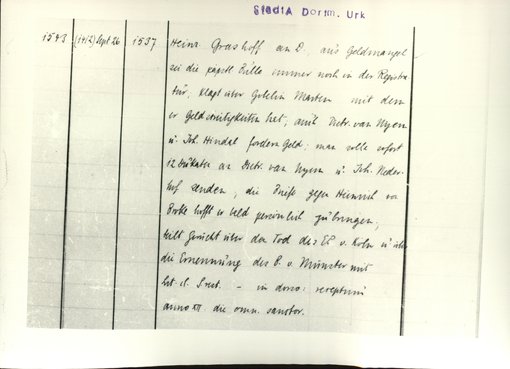 Stadt A Dortm. Urk
1543 (1412) Sept 26 1537 Heinr. Grashoff an D., aus Geldmangel
sei die päpstl. Bulle immer noch in der Registra-
tur; klagt über Gobelin Marten mit dem
er Geldstreitigkeiten hat; auch Dietr. van Nyem
u. Joh. Hindal fordern Geld; man solle sofort
12 Dukaten an Dietr. van Nyem u. Joh. Neder-
hof senden, die Briefe gegen Heinrich von
Broke hofft er bald persönlich zu bringen,
teilt Gerücht über den Tod des EB v. Köln u. über
die Ernennung des B. v. Münster mit
lit. cl. - in dorso: receptum
anno XII die omn. sanctor.